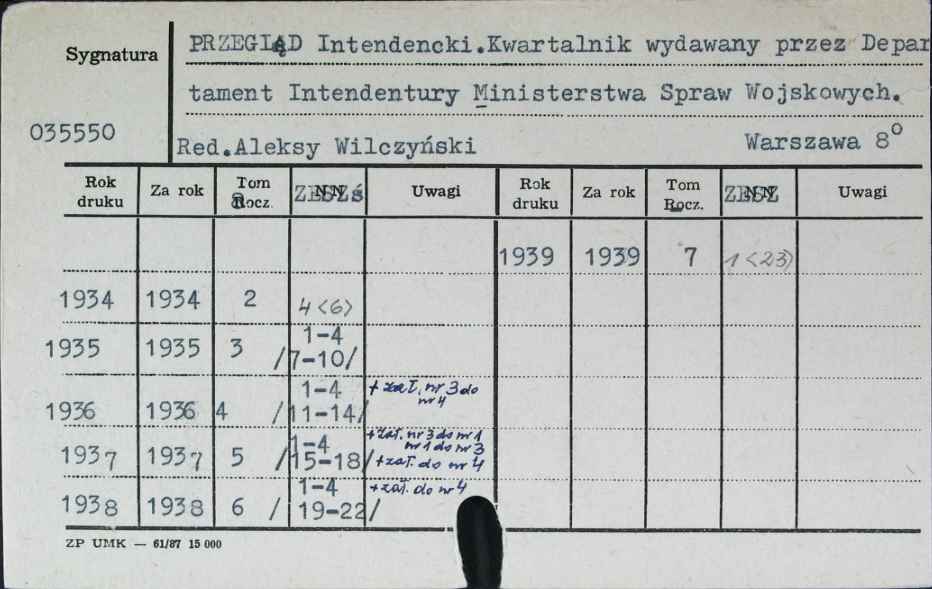 Sygnatura
PRZEGLĄD Intendencki.Kwartalnik wydawany przez Depar
tament Intendentury Ministerstwa Spraw Wojskowych.
035550
Red.Aleksy Wilczyński Warszawa 8°
Rok druku Za rok Tom Rocz. ZESZ Uwagi Rok druku Za rok Tom Rocz. ZESZ Uwagi
1939 1939 7 1<23>
1934 1934 2 4<6>
1935 1935 3 1-4 /7-10/
1936 1936 4 1-4 /11-14/ + zał. nr 3 do nr 4
1937 1937 5 1-4 /15-18/ + zał. nr 3 do nr 1 nr 1 do nr 3 + zał. do nr 4
1938 1938 6 1-4 / 19-22/ + zał. do nr 4
ZP UMK — 61/87 15 000